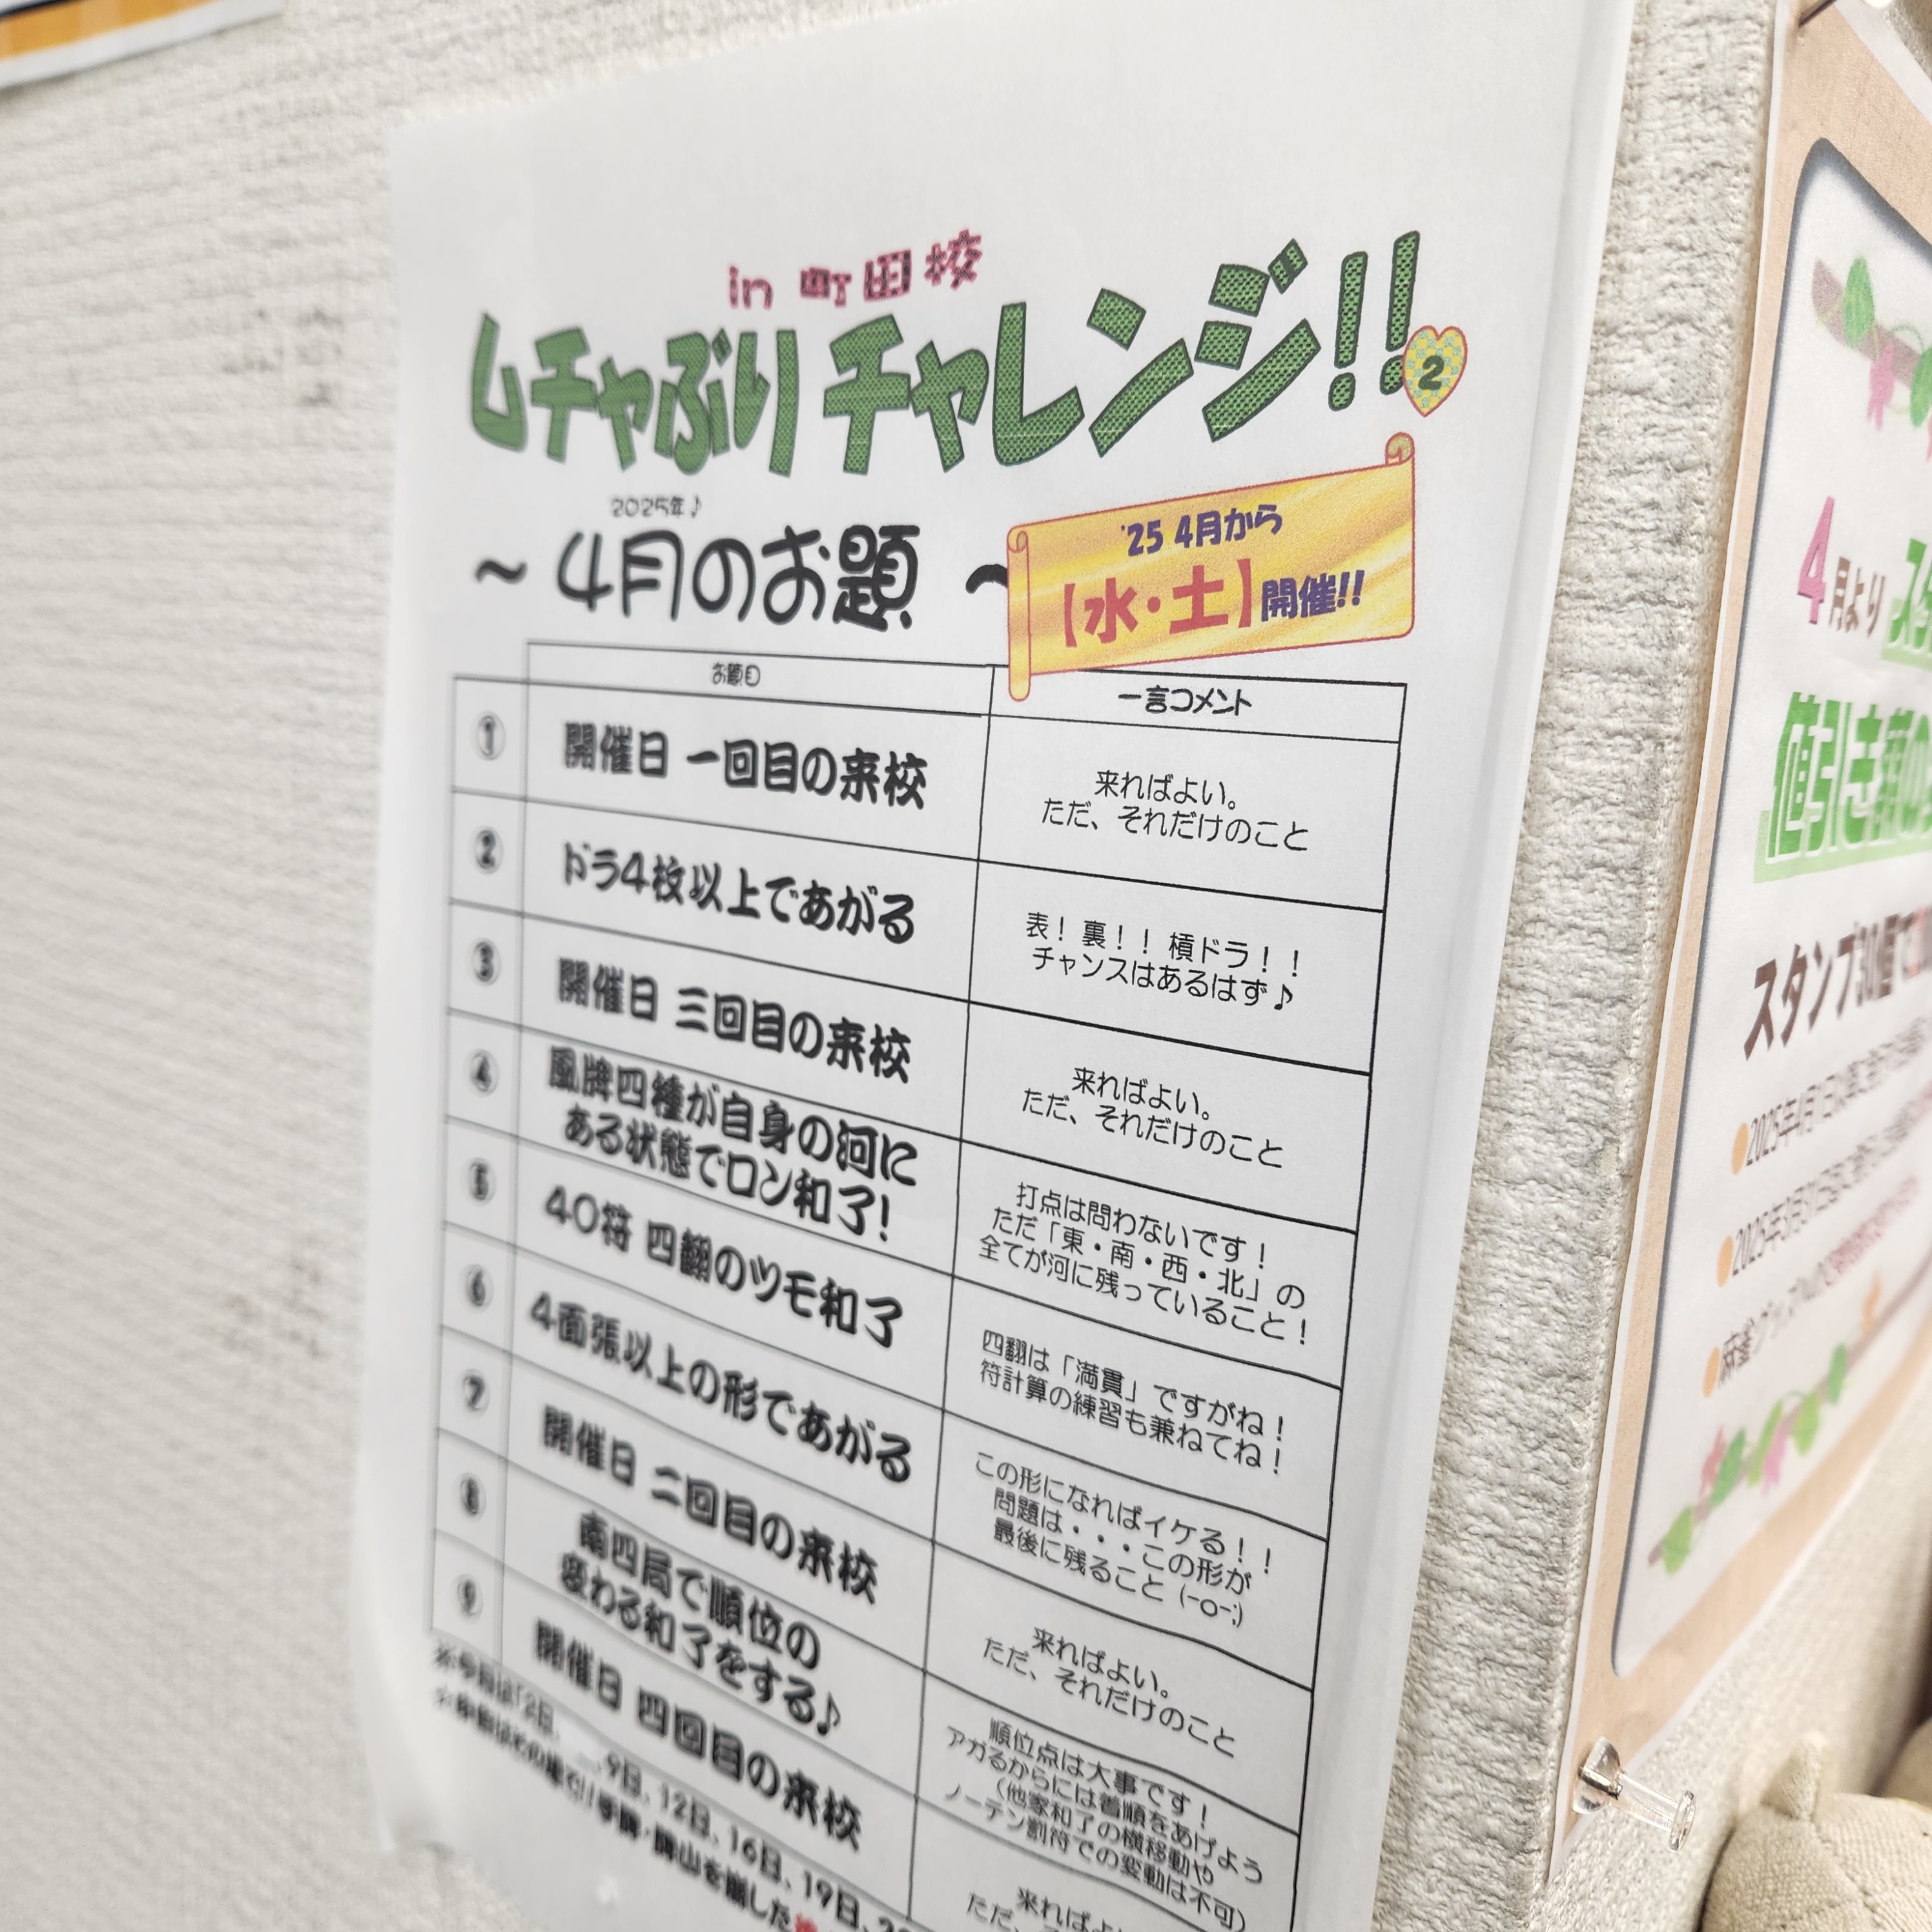 in 町田校
ムチャぶりチャレンジ!!
2
2025年♪
～ 4月のお題 ～
'25 4月から
【水・土】開催!!
お題目
一言コメント
①
開催日 一回目の来校
来ればよい。
ただ、それだけのこと
②
ドラ4枚以上であがる
表！裏！！槓ドラ！！
チャンスはあるはず♪
③
開催日 三回目の来校
来ればよい。
ただ、それだけのこと
④
風牌四種が自身の河に
ある状態でロン和了!
打点は問わないです！
ただ「東・南・西・北」の
全てが河に残っていること！
⑤
40符 四翻のツモ和了
四翻は「満貫」ですがね！
符計算の練習も兼ねてね！
⑥
4面張以上の形であがる
この形になればイケる！！
問題は・・・この形が
最後に残ること (-o-;)
⑦
開催日 二回目の来校
来ればよい。
ただ、それだけのこと
⑧
南四局で順位の
変わる和了をする♪
順位点は大事です！
アガるからには着順をあげよう
(他家和了の横移動や
ノーテン罰符での変動は不可)
⑨
開催日 四回目の来校
来ればよい
ただ、
※今月は「2日、 9日、12日、16日、19日、
手牌・牌山を崩した
4月より
値引き
スタンプ30個で